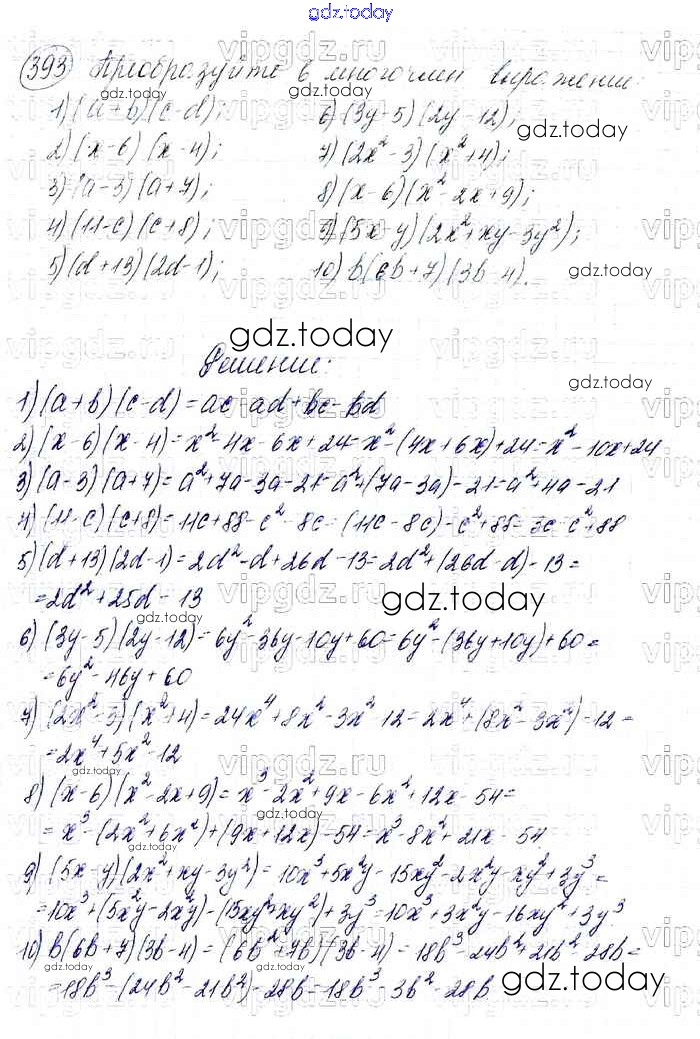 gdz.today
393 Преобразуйте в многочлен выражение:
1) (a+b)(c-d); 6) (3y-5)(2y-12);
2) (x-6)(x-4); 7) (2x²-3)(x²+4);
3) (a-3)(a+7); 8) (x-6)(x²-2x+9);
4) (11-c)(c+8); 9) (5x-y)(2x²+xy-3y²);
5) (d+13)(2d-1); 10) b(6b+7)(3b-4).
gdz.today
Решение:
1) (a+b)(c-d)=ac-ad+bc-bd
2) (x-6)(x-4)=x²-4x-6x+24=x²-(4x+6x)+24=x²-10x+24
3) (a-3)(a+7)=a²+7a-3a-21=a²+(7a-3a)-21=a²+4a-21
4) (11-c)(c+8)=11c+88-c²-8c=(11c-8c)-c²+88=3c-c²+88
5) (d+13)(2d-1)=2d²-d+26d-13=2d²+(26d-d)-13=
=2d²+25d-13
gdz.today
6) (3y-5)(2y-12)=6y²-36y-10y+60=6y²-(36y+10y)+60=
=6y²-46y+60
7) (2x²-3)(x²+4)=24x⁴+8x²-3x²-12=2x⁴+(8x²-3x²)-12=
=2x⁴+5x²-12
8) (x-6)(x²-2x+9)=x³-2x²+9x-6x²+12x-54=
=x³-(2x²+6x²)+(9x+12x)-54=x³-8x²+21x-54
9) (5x-y)(2x²+xy-3y²)=10x³+5x²y-15xy²-2x²y-xy²+3y³=
=10x³+(5x²y-2x²y)-(15xy²+xy²)+3y³=10x³+3x²y-16xy²+3y³.
10) b(6b+7)(3b-4)=(6b²+7b)(3b-4)=18b³-24b²+21b²-28b=
=18b³-(24b²-21b²)-28b=18b³-3b²-28b
gdz.today